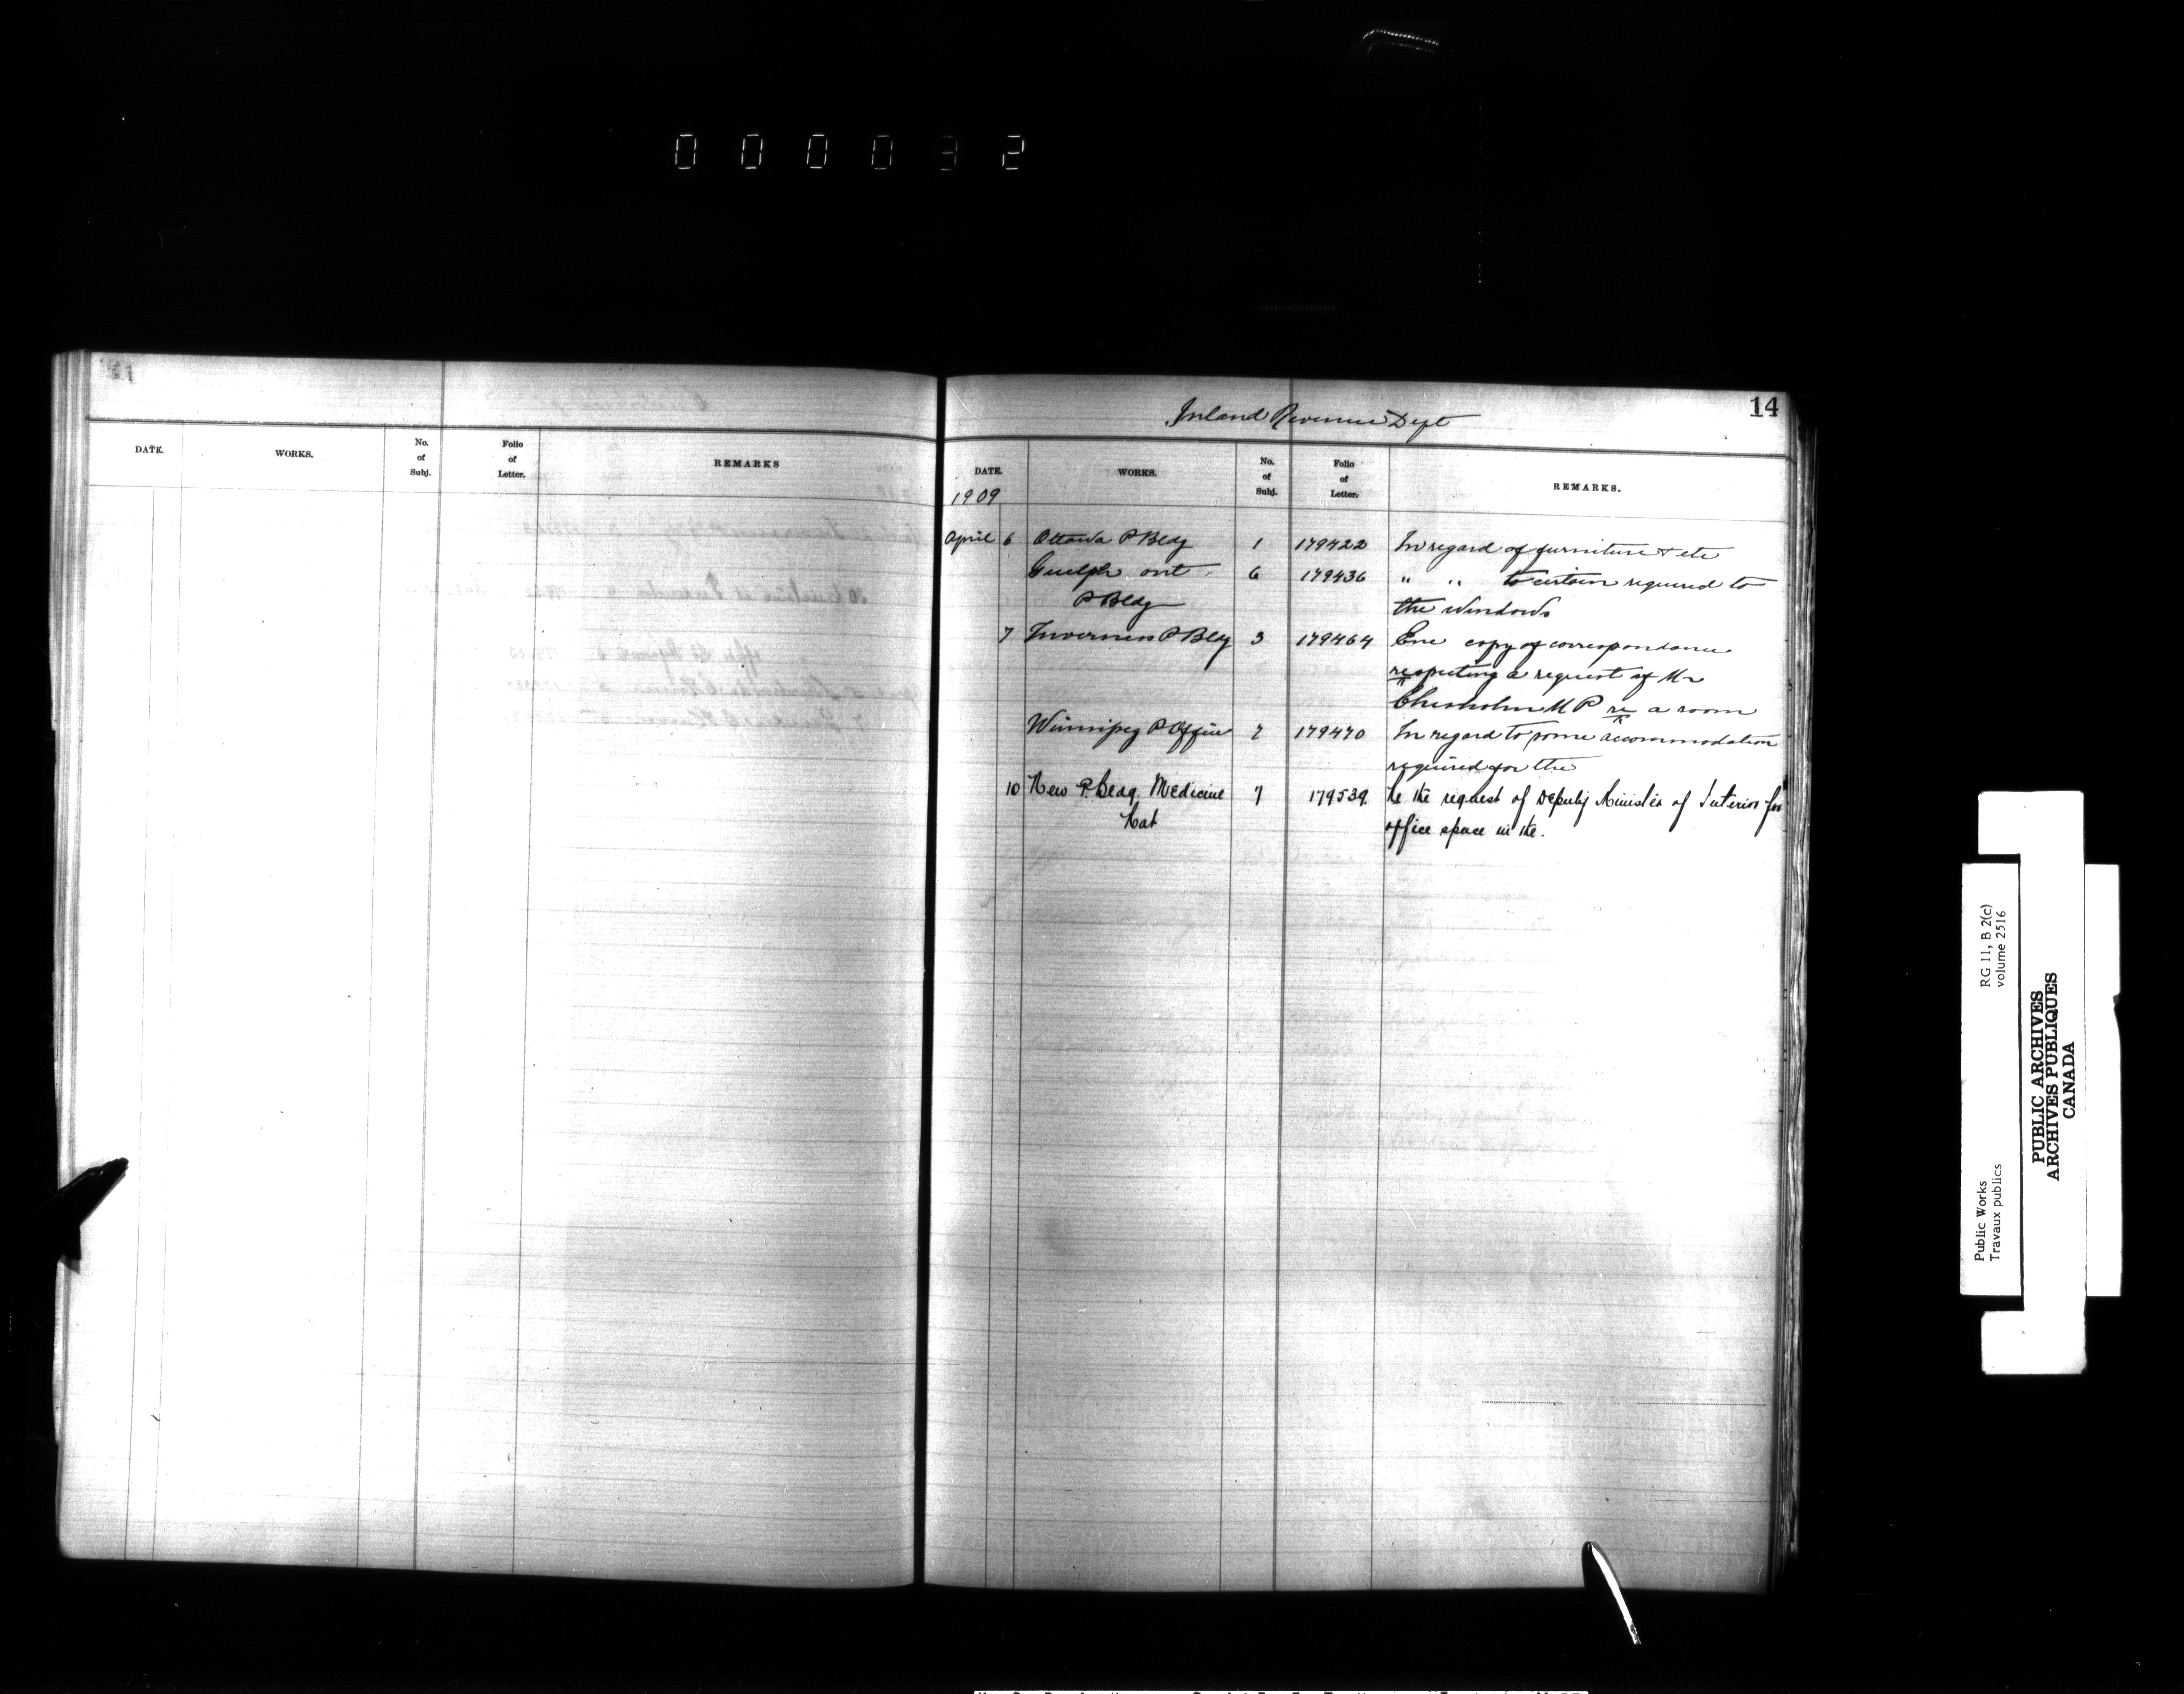 000032
14
Inland Revenue Dept
DATE. WORKS. No. of Subj. Folio of Letter. REMARKS
DATE. WORKS. No. of Subj. Folio of Letter. REMARKS.
1909
April 6 Ottawa P Bldg 1 179422 In regard of furniture & etc
Guelph Ont. 6 179436 " " to certain required to
P Bldg the windows
7 Inverness P Bldg 3 179464 Enc copy of correspondance
respecting a request of Mr
Chisholm M P re a room
Winnipeg P Office 7 179470 In regard to some accommodation
required for the
10 New P. Bldg. Medicine 7 179539. Re the request of Deputy Minister of Interior for
Hat office space in the.
RG 11, B 2(c)
volume 2516
Public Works
Travaux publics
PUBLIC ARCHIVES
ARCHIVES PUBLIQUES
CANADA